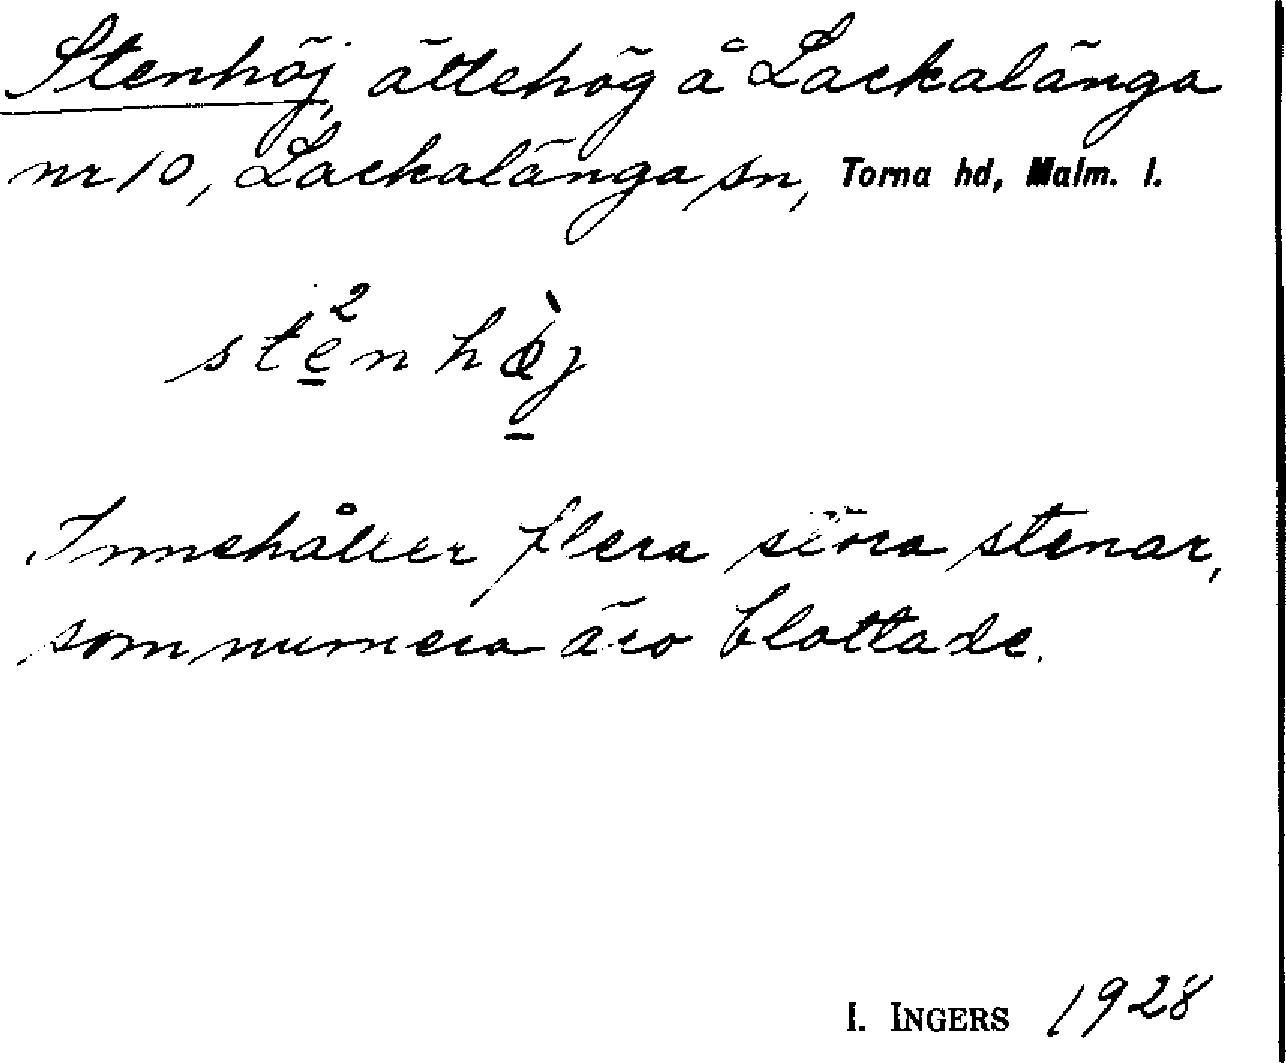 Stenhöj, ättehög å Lackalänga
nr 10, Lackalänga sn, Torna hd, Malm. l.
ste²nhø̀j
Innehåller flera stora stenar,
som numera äro blottade.
I. INGERS 1928